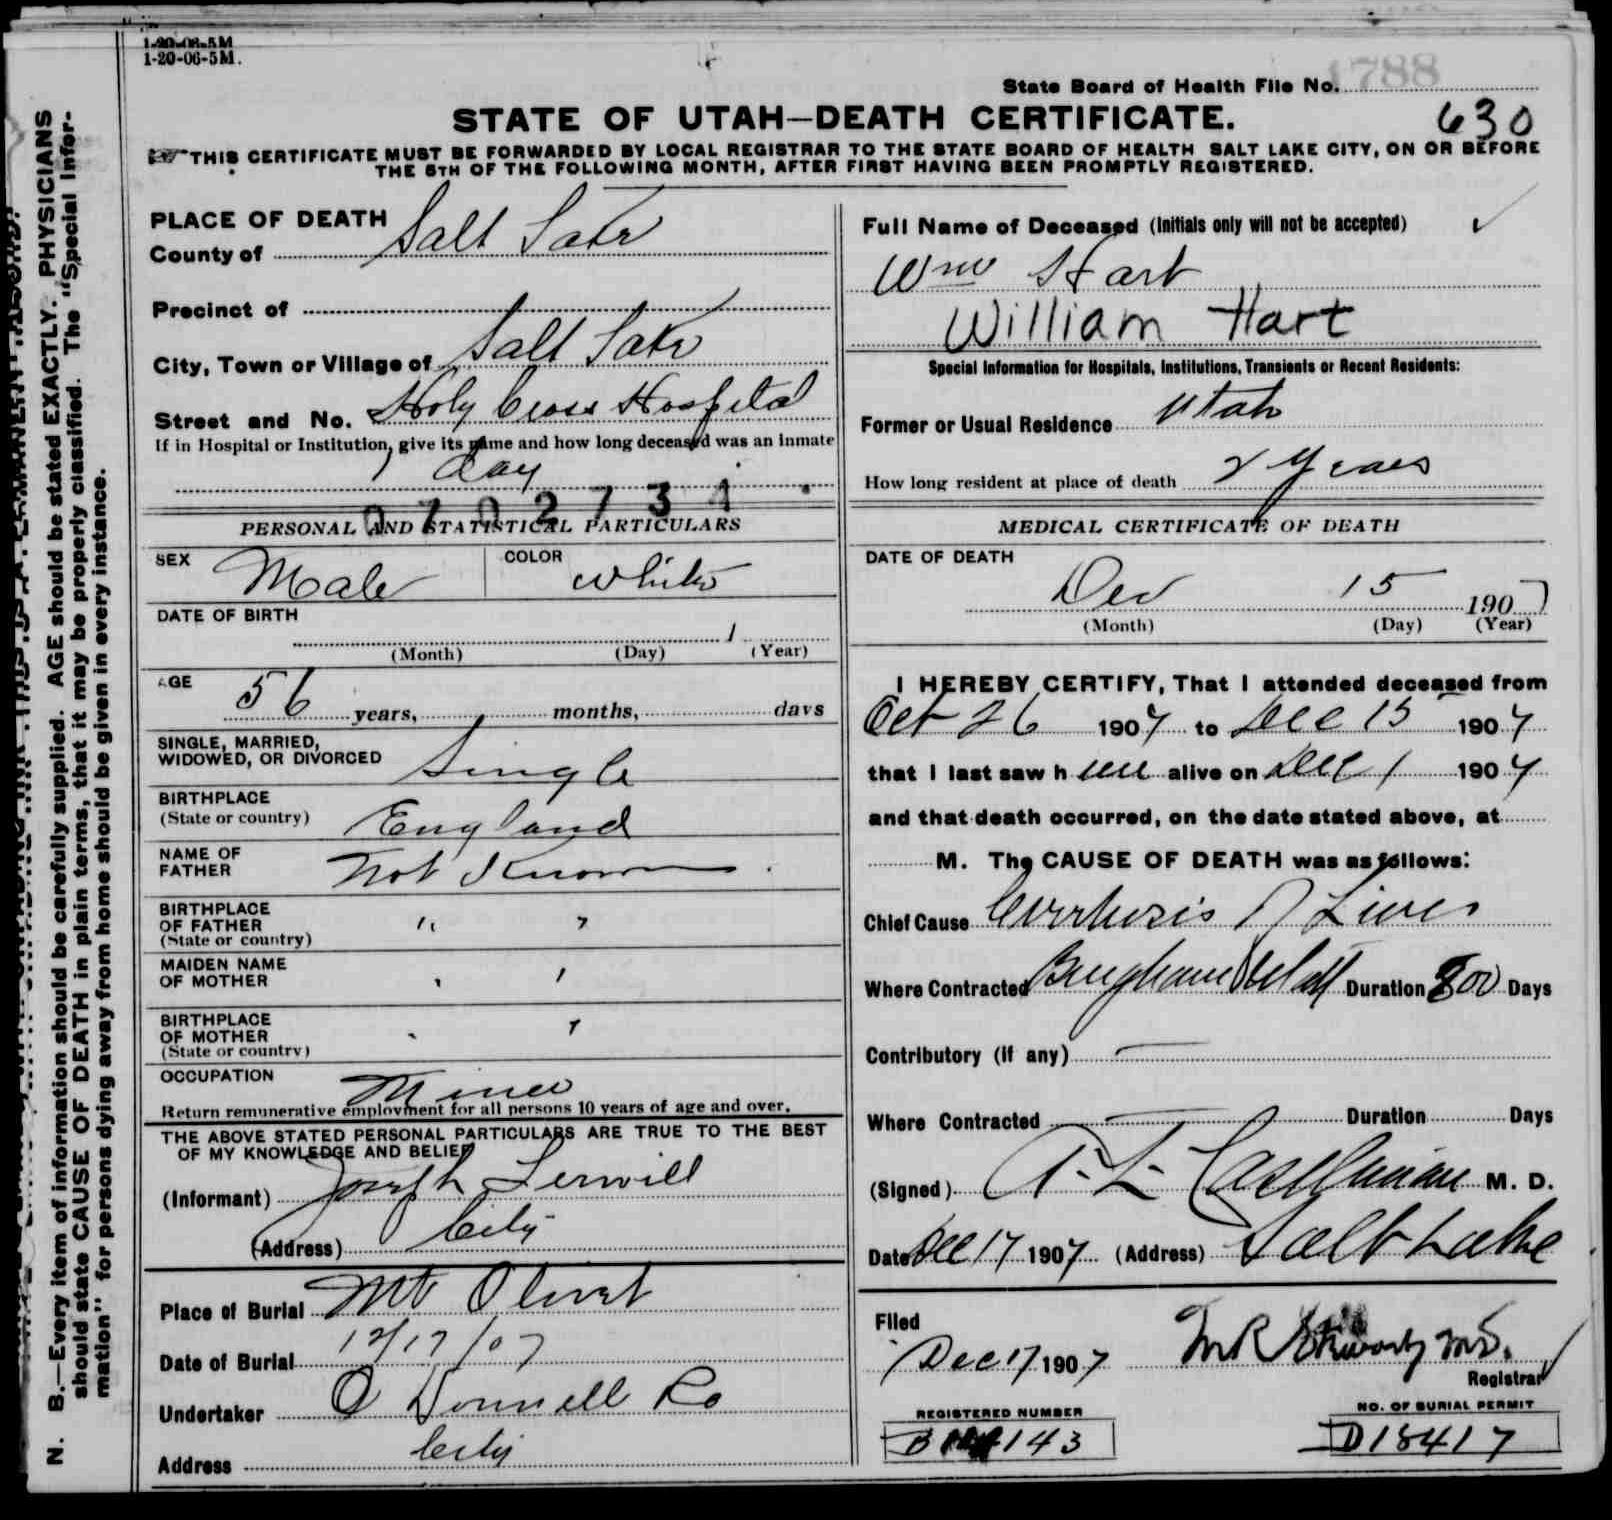 1-20-06-5M
1-20-06-5M.
State Board of Health File No. 1788
STATE OF UTAH—DEATH CERTIFICATE.
630
THIS CERTIFICATE MUST BE FORWARDED BY LOCAL REGISTRAR TO THE STATE BOARD OF HEALTH SALT LAKE CITY, ON OR BEFORE
THE 5TH OF THE FOLLOWING MONTH, AFTER FIRST HAVING BEEN PROMPTLY REGISTERED.
N. B.—Every item of information should be carefully supplied. AGE should be stated EXACTLY. PHYSICIANS
should state CAUSE OF DEATH in plain terms, that it may be properly classified. The "Special Infor-
mation" for persons dying away from home should be given in every instance.
PLACE OF DEATH
County of Salt Lake
Precinct of
City, Town or Village of Salt Lake
Street and No. Holy Cross Hospital
If in Hospital or Institution, give its name and how long deceased was an inmate
1 day
0702731
PERSONAL AND STATISTICAL PARTICULARS
SEX Male COLOR White
DATE OF BIRTH
1
(Month) (Day) (Year)
AGE
56 years, months, days
SINGLE, MARRIED,
WIDOWED, OR DIVORCED Single
BIRTHPLACE
(State or country) England
NAME OF
FATHER Not Known
BIRTHPLACE
OF FATHER " "
(State or country)
MAIDEN NAME
OF MOTHER
BIRTHPLACE
OF MOTHER
(State or country)
OCCUPATION Miner
Return remunerative employment for all persons 10 years of age and over.
THE ABOVE STATED PERSONAL PARTICULARS ARE TRUE TO THE BEST
OF MY KNOWLEDGE AND BELIEF
(Informant) Joseph Lerwill
(Address) City
Place of Burial Mt Olivet
Date of Burial 12/17/07
Undertaker O Donnell Co
Address City
Full Name of Deceased (Initials only will not be accepted)
Wm Hart
William Hart
Special Information for Hospitals, Institutions, Transients or Recent Residents:
Former or Usual Residence Utah
How long resident at place of death 2 years
MEDICAL CERTIFICATE OF DEATH
DATE OF DEATH
Dec 15 1907
(Month) (Day) (Year)
I HEREBY CERTIFY, That I attended deceased from
Oct 26 1907 to Dec 15 1907
that I last saw him alive on Dec 1 1907
and that death occurred, on the date stated above, at
M. The CAUSE OF DEATH was as follows:
Chief Cause Cirrhosis of Liver
Where Contracted Bingham Utah Duration 800 Days
Contributory (if any)
Where Contracted Duration Days
(Signed) M. D.
Date Dec 17 1907 (Address) Salt Lake
Filed
Dec 17 1907 M R Stewart M.D.
Registrar
REGISTERED NUMBER
B 143
NO. OF BURIAL PERMIT
D18417